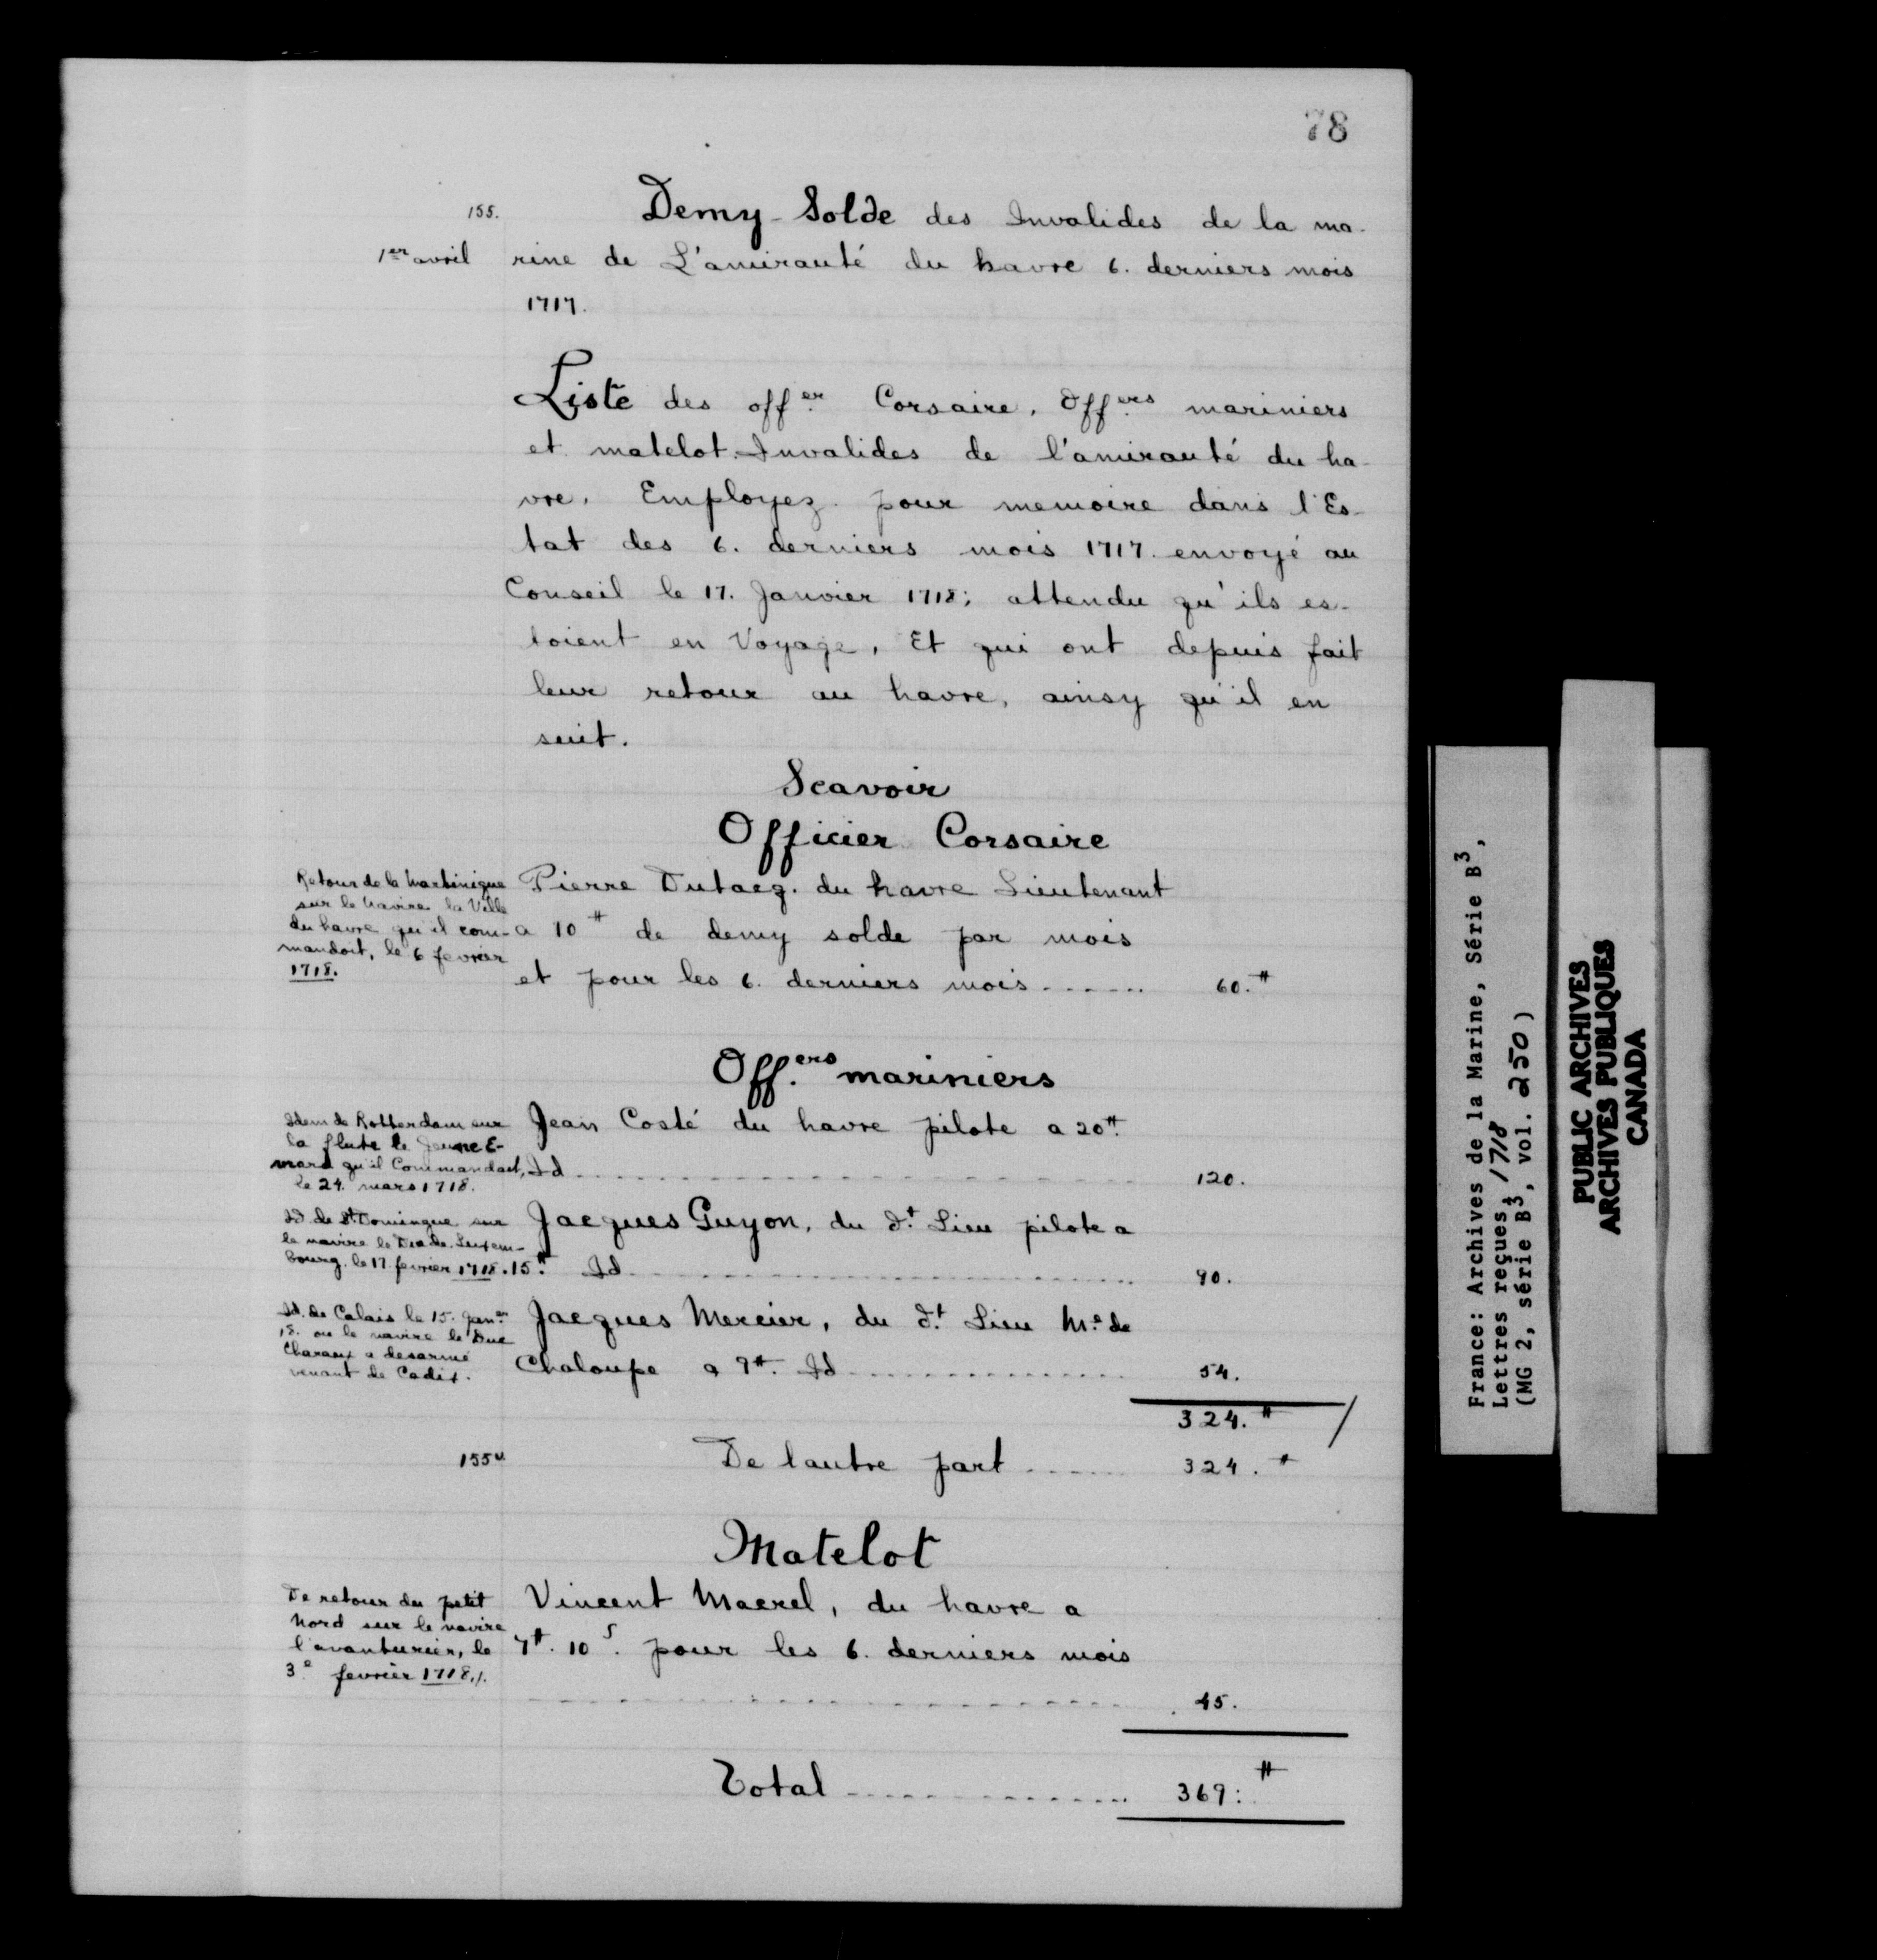 78
155.
Demy-Solde des Invalides de la ma-
1er avril
rine de L'amirauté du havre 6. derniers mois
1717.
Liste des offer Corsaire, Offers mariniers
et matelot Invalides de l'amirauté du ha-
vre. Employez pour memoire dans l'Es-
tat des 6. derniers mois 1717. envoyé au
Conseil le 17. Janvier 1718; attendu qu'ils es-
toient en Voyage, Et qui ont depuis fait
leur retour au havre, ainsy qu'il en
suit.
Scavoir
Officier Corsaire
Retour de la Martinique
sur le Navire la Ville
du havre qu'il com-
mandoit, le 6 fevrier
1718.
Pierre Dutacq. du havre Lieutenant
a 10# de demy solde par mois
et pour les 6. derniers mois ....... 60.#
Off.ers mariniers
Idem de Rotterdam sur
la flute le Jeune E-
mard qu'il Commandait,
le 24. mars 1718.
Jean Costé du havre pilote a 20#.
Id ....... 120.
Id de St. Domingue sur
le navire le Duc de Luxem-
bourg. le 17 fevrier 1718.
Jacques Guyon, du d.t Lieu pilote a
15.# Id ....... 90.
Id. de Calais le 15. Jan.er
18. ou le navire le Duc
Charaux a desarmé
venant de Cadix.
Jacques Mercier, du d.t Lieu M.e de
Chaloupe a 9#. Id ....... 54.
324.#
155v
De lautre part ...... 324.#
Matelot
De retour du petit
Nord sur le navire
l'avanturier, le
3.e fevrier 1718./.
Vincent Macrel, du havre a
7#. 10s. pour les 6. derniers mois
....... 45.
Total ....... 369:#
France: Archives de la Marine, Série B3,
Lettres reçues, 1718
(MG 2, série B3, vol. 250)
PUBLIC ARCHIVES
ARCHIVES PUBLIQUES
CANADA